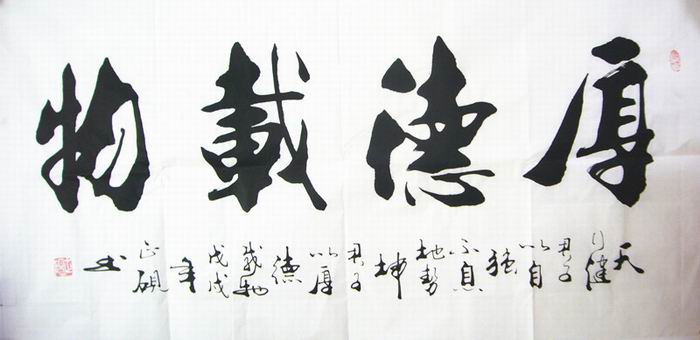 厚德載物
天
行健
君子
以自
强
不息
地勢
坤
君子
以厚
德
載物
戊戌
年
正硯
书